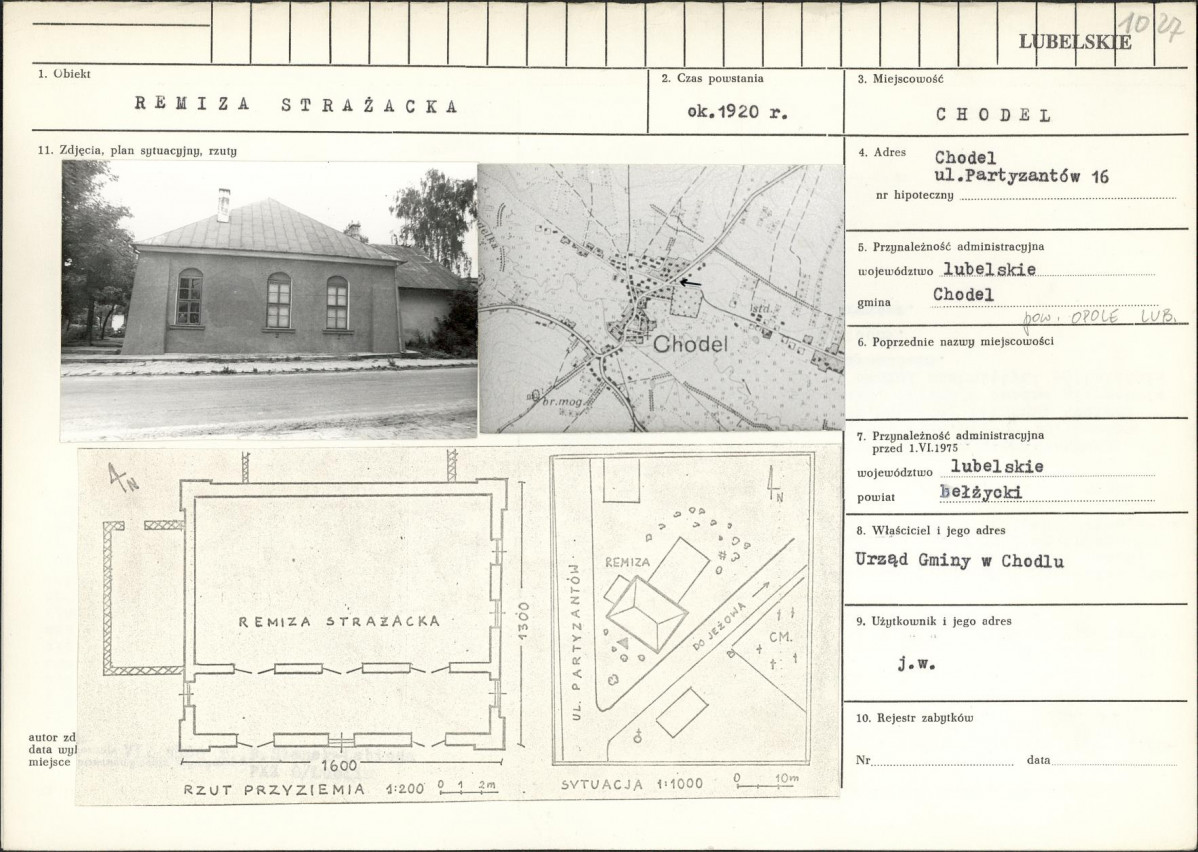 1027
LUBELSKIE
1. Obiekt
REMIZA STRAŻACKA
2. Czas powstania
ok.1920 r.
3. Miejscowość
CHODEL
11. Zdjęcia, plan sytuacyjny, rzuty
4. Adres
Chodel
ul.Partyzantów 16
nr hipoteczny
5. Przynależność administracyjna
województwo lubelskie
gmina Chodel
pow. OPOLE LUB.
6. Poprzednie nazwy miejscowości
7. Przynależność administracyjna
przed 1.VI.1975
województwo lubelskie
powiat bełżycki
8. Właściciel i jego adres
Urząd Gminy w Chodlu
9. Użytkownik i jego adres
j.w.
10. Rejestr zabytków
Nr
data
std.
Chodel
br.mog.
N
REMIZA STRAŻACKA
1300
1600
RZUT PRZYZIEMIA 1:200 0 1 2m
N
REMIZA
UL. PARTYZANTÓW
DO JEŻOWA
CM.
SYTUACJA 1:1000 0 10m
autor zd
data wyk
miejsce